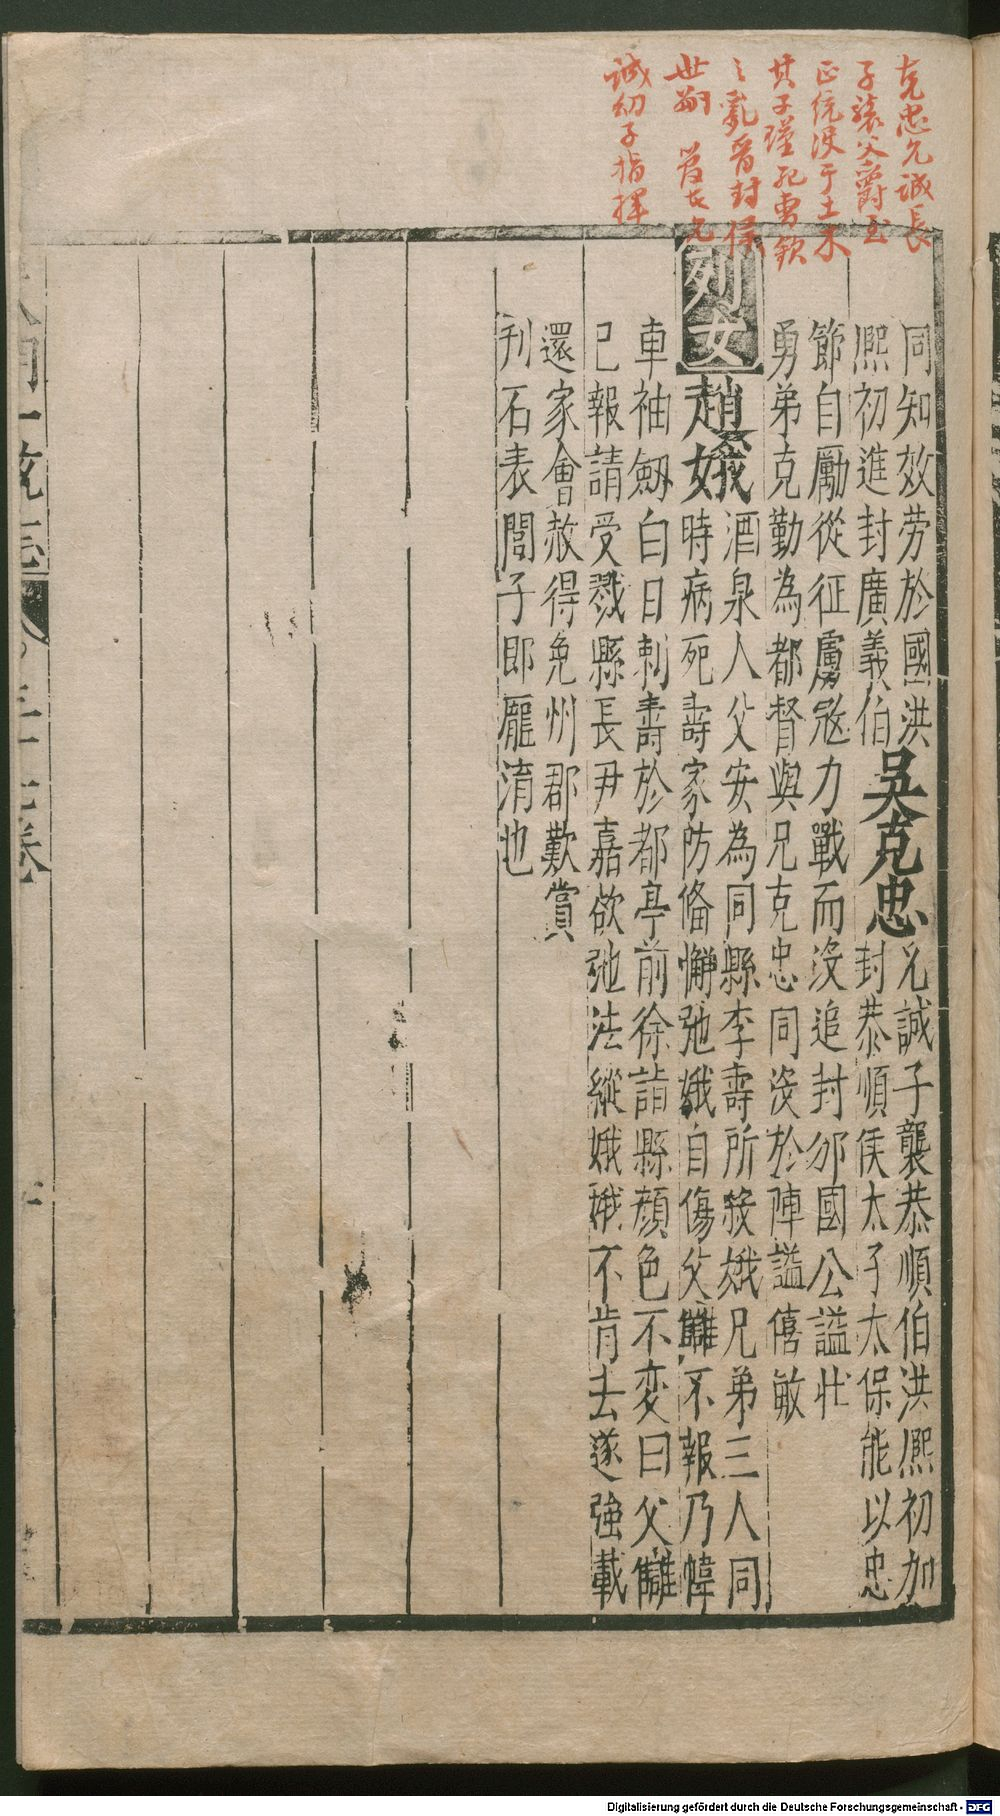 克忠允誠長
子襲父爵至
正統没于土木
其子瑾死曹欽
之亂晉封侯
世嗣 允
誠幼子指揮
同知效劳於國洪
熈初進封廣義伯
吳克忠
允誠子襲恭順伯洪熈初加
封恭順侯太子太保能以忠
節自勵從征虜寇力戰而没追封邠國公謚壯
勇弟克勤為都督與兄克忠同没於陣謚僖敏
列女
趙娥
酒泉人父安為同縣李壽所殺娥兄弟三人同
時病死壽家防備懈弛娥自傷父讎不報乃幃
車袖劔白日刺壽於都亭前徐詣縣顔色不変曰父讎
已報請受戮縣長尹嘉欲弛法縱娥娥不肯去遂強載
還家會赦得免州郡歎賞
刋石表閭子即龐淯也
大明一統志 三十七卷
Digitalisierung gefördert durch die Deutsche Forschungsgemeinschaft - DFG